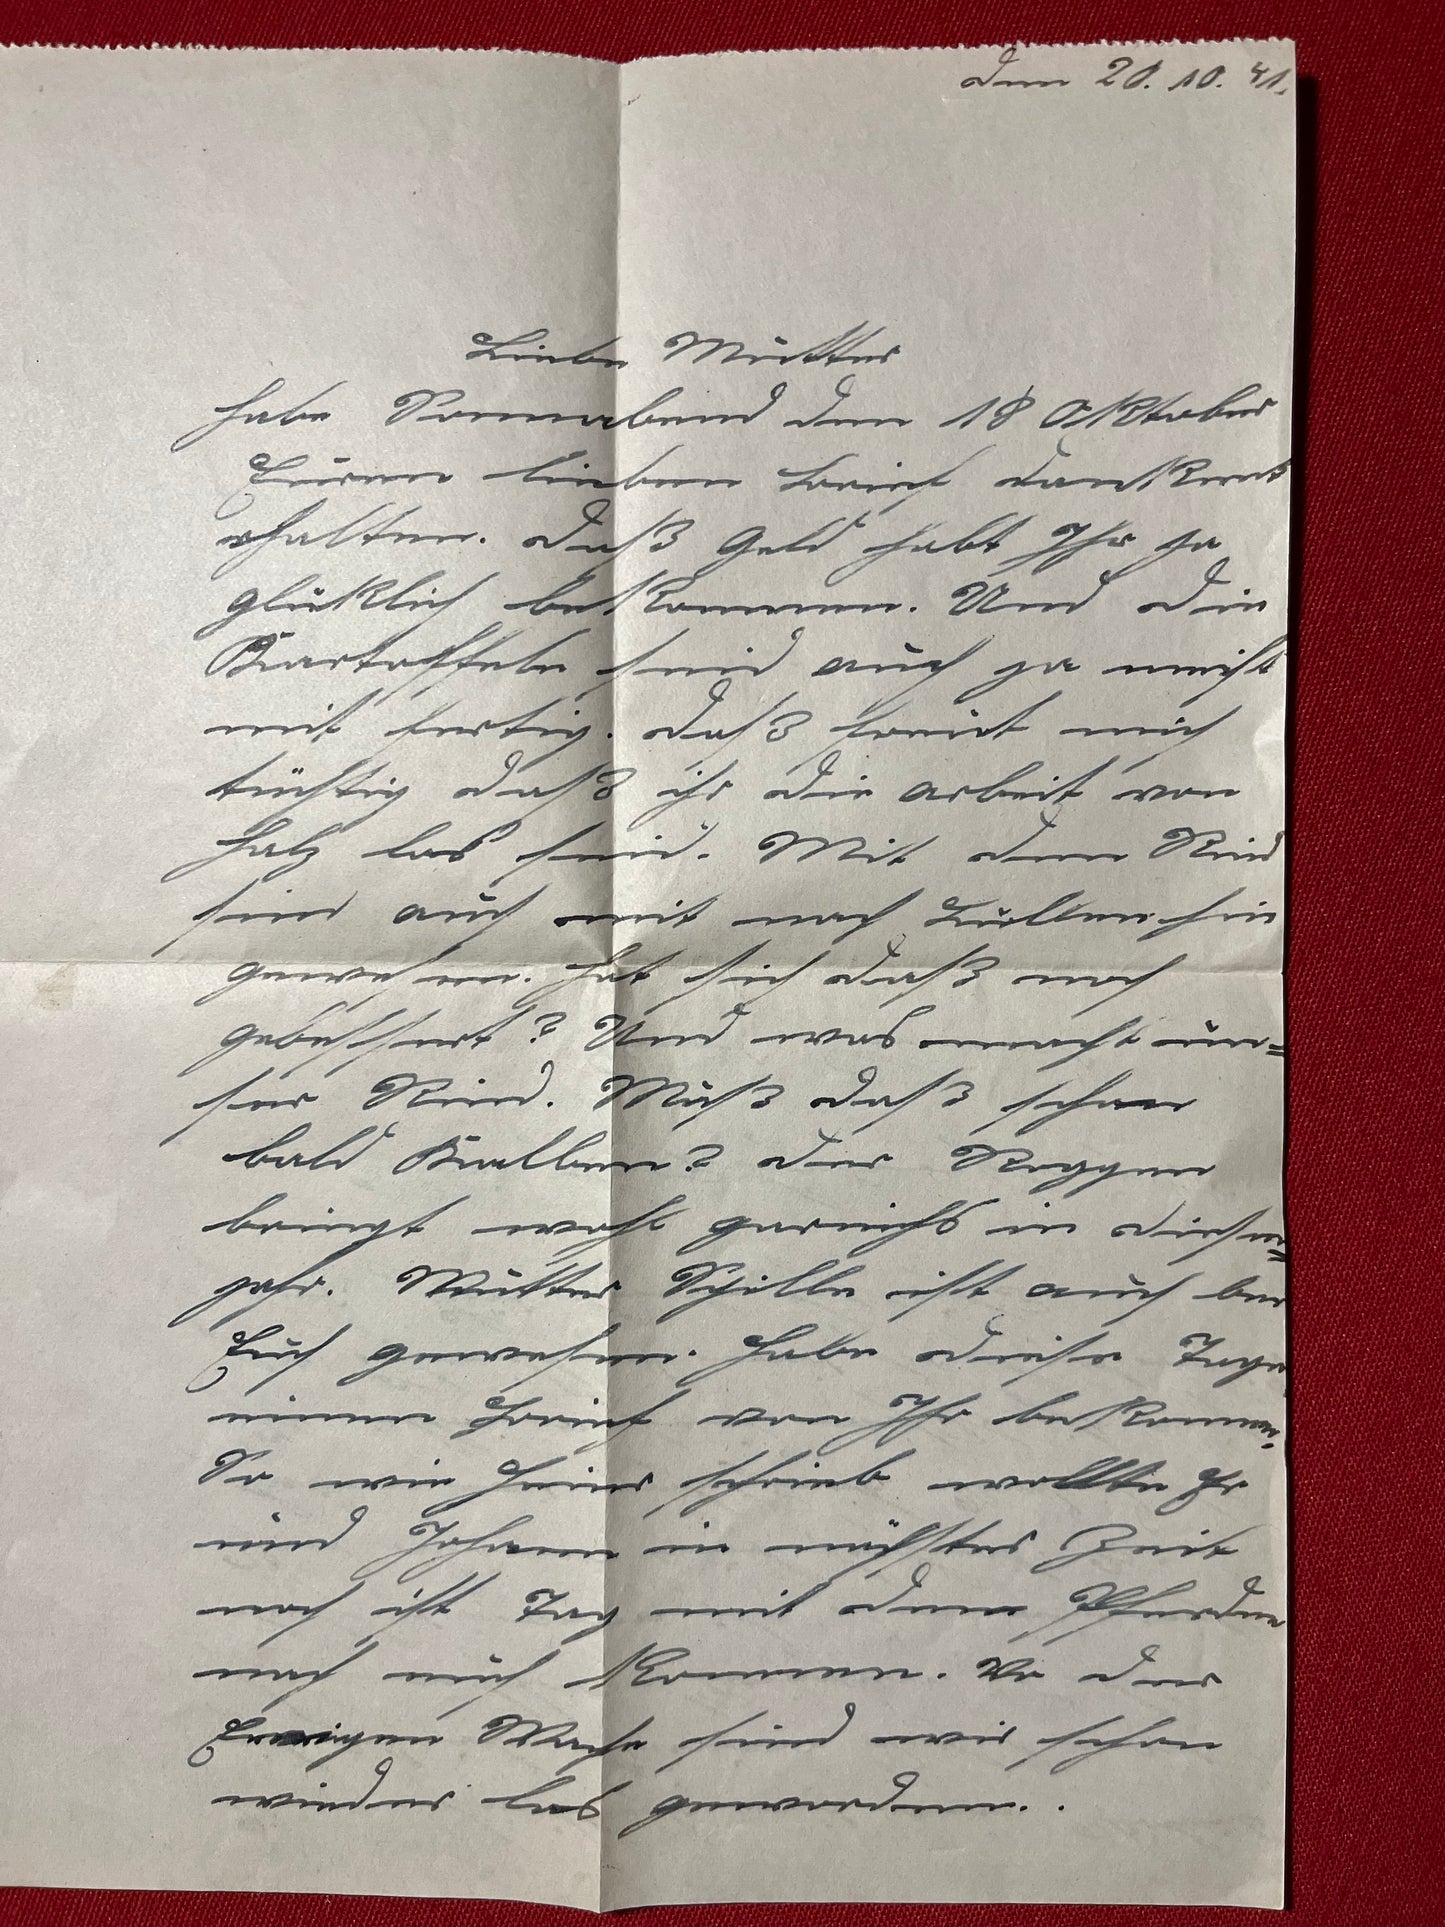 den 20. 10. 41.
Liebe Mutter
habe Sonnabend den 18 Oktober
Euren lieben Brief dankent
erhalten. Daß Geld habt Ihr ja
glücklich bekommen. Und die
Kartoffeln seid auch ja meist
mit fertig. Daß freut mich
tüchtig daß ihr die arbeit von
Halz los seid. Mit dem Rind
sind auch mit nach hin
gewesen. Hat sich daß noch
gebessert? Und was macht un=
ser Rind. Muß daß schon
bald Kalben? Der Roggen
bringt wohl garnichs in diesen=
jahr. Mutter Schille ist auch bei
Euch gewesen. Habe diese Tage
einen Brief von Ihr bekommen.
So wie Heiner schrieb wollte Er
und Johann in nächster Zeit
noch ist Tag mit den Pferden
nach euch kommen. Vo der
Wache sind wir schon
wieder los geworden. .